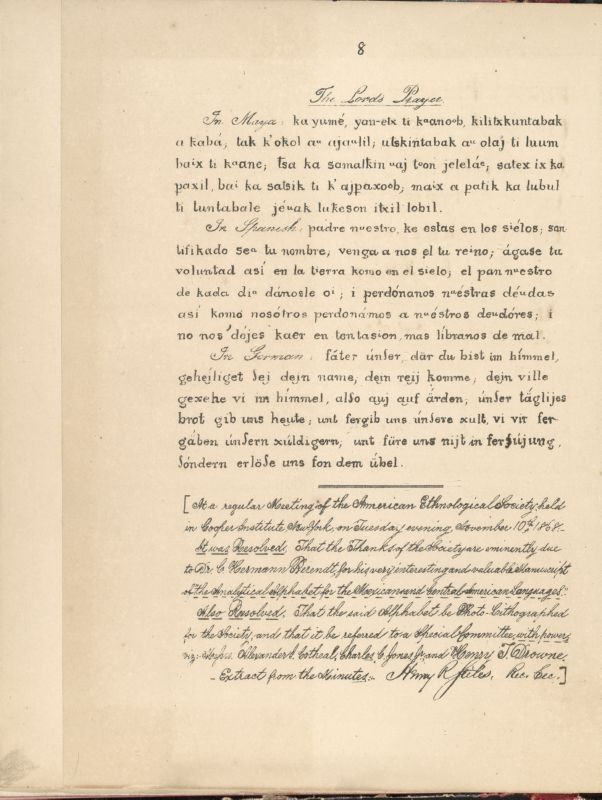 8
The Lord's Prayer.
In Maya: ka yumé, yan-etx ti kaanoob, kilitxkuntabak
a kabá; tak k'okol au ajaulil; utskintabak au olaj ti luum
baix ti kaane; tsa ka samalkin uaj toon jelelae; satex ix ka
paxil, bai ka satsik ti k'ajpaxoob; maix a patik ka lubul
ti tuntabale jéuak lukeson itxil lobil.
In Spanish: padre nuestro, ke estas en los siélos; san
tifikado sea tu nombre; venga a nos el tu reino; ágase tu
voluntad así en la tierra komo en el sielo; el pan nuestro
de kada dia dánosle oi; i perdónanos nuéstras déudas
así komo nosótros perdonámos a nuéstros deudóres; i
no nos déjes kaer en tentasion, mas líbranos de mal.
In German: fáter únser, där du bist im hímmel,
gehejliget sej dejn name; dejn rejj komme; dejn ville
gexehe vi im hímmel, also auj auf ärden; únser täglijes
brot gib uns heute; unt fergib uns únsere xult, vi vir fer-
gäben únsern xúldigern; unt füre uns nijt in fersújung,
sóndern erlöse uns fon dem übel.
[At a regular Meeting of the American Ethnological Society, held
in Cooper Institute New York, on Tuesday evening, November 10th 1868.—
It was Resolved, That the Thanks of the Society are eminently due
to Dr C. Hermann Berendt, for his very interesting and valuable Manuscript
of the Analytical Alphabet for the Mexican and Central American Languages."
Also Resolved, That the said Alphabet be Photo-Lithographed
for the Society, and that it be referred to a Special Committee, with power,
viz: Messrs. Alexander I. Cotheal, Charles C. Jones Jr, and Henry T. Drowne.
— Extract from the Minutes:- Henry R Stiles, Rec. Sec.]